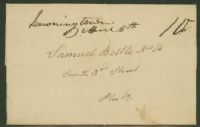 Downingtown
April 5th 10
Samuel Bettle No 14
South 3rd Street
Phila